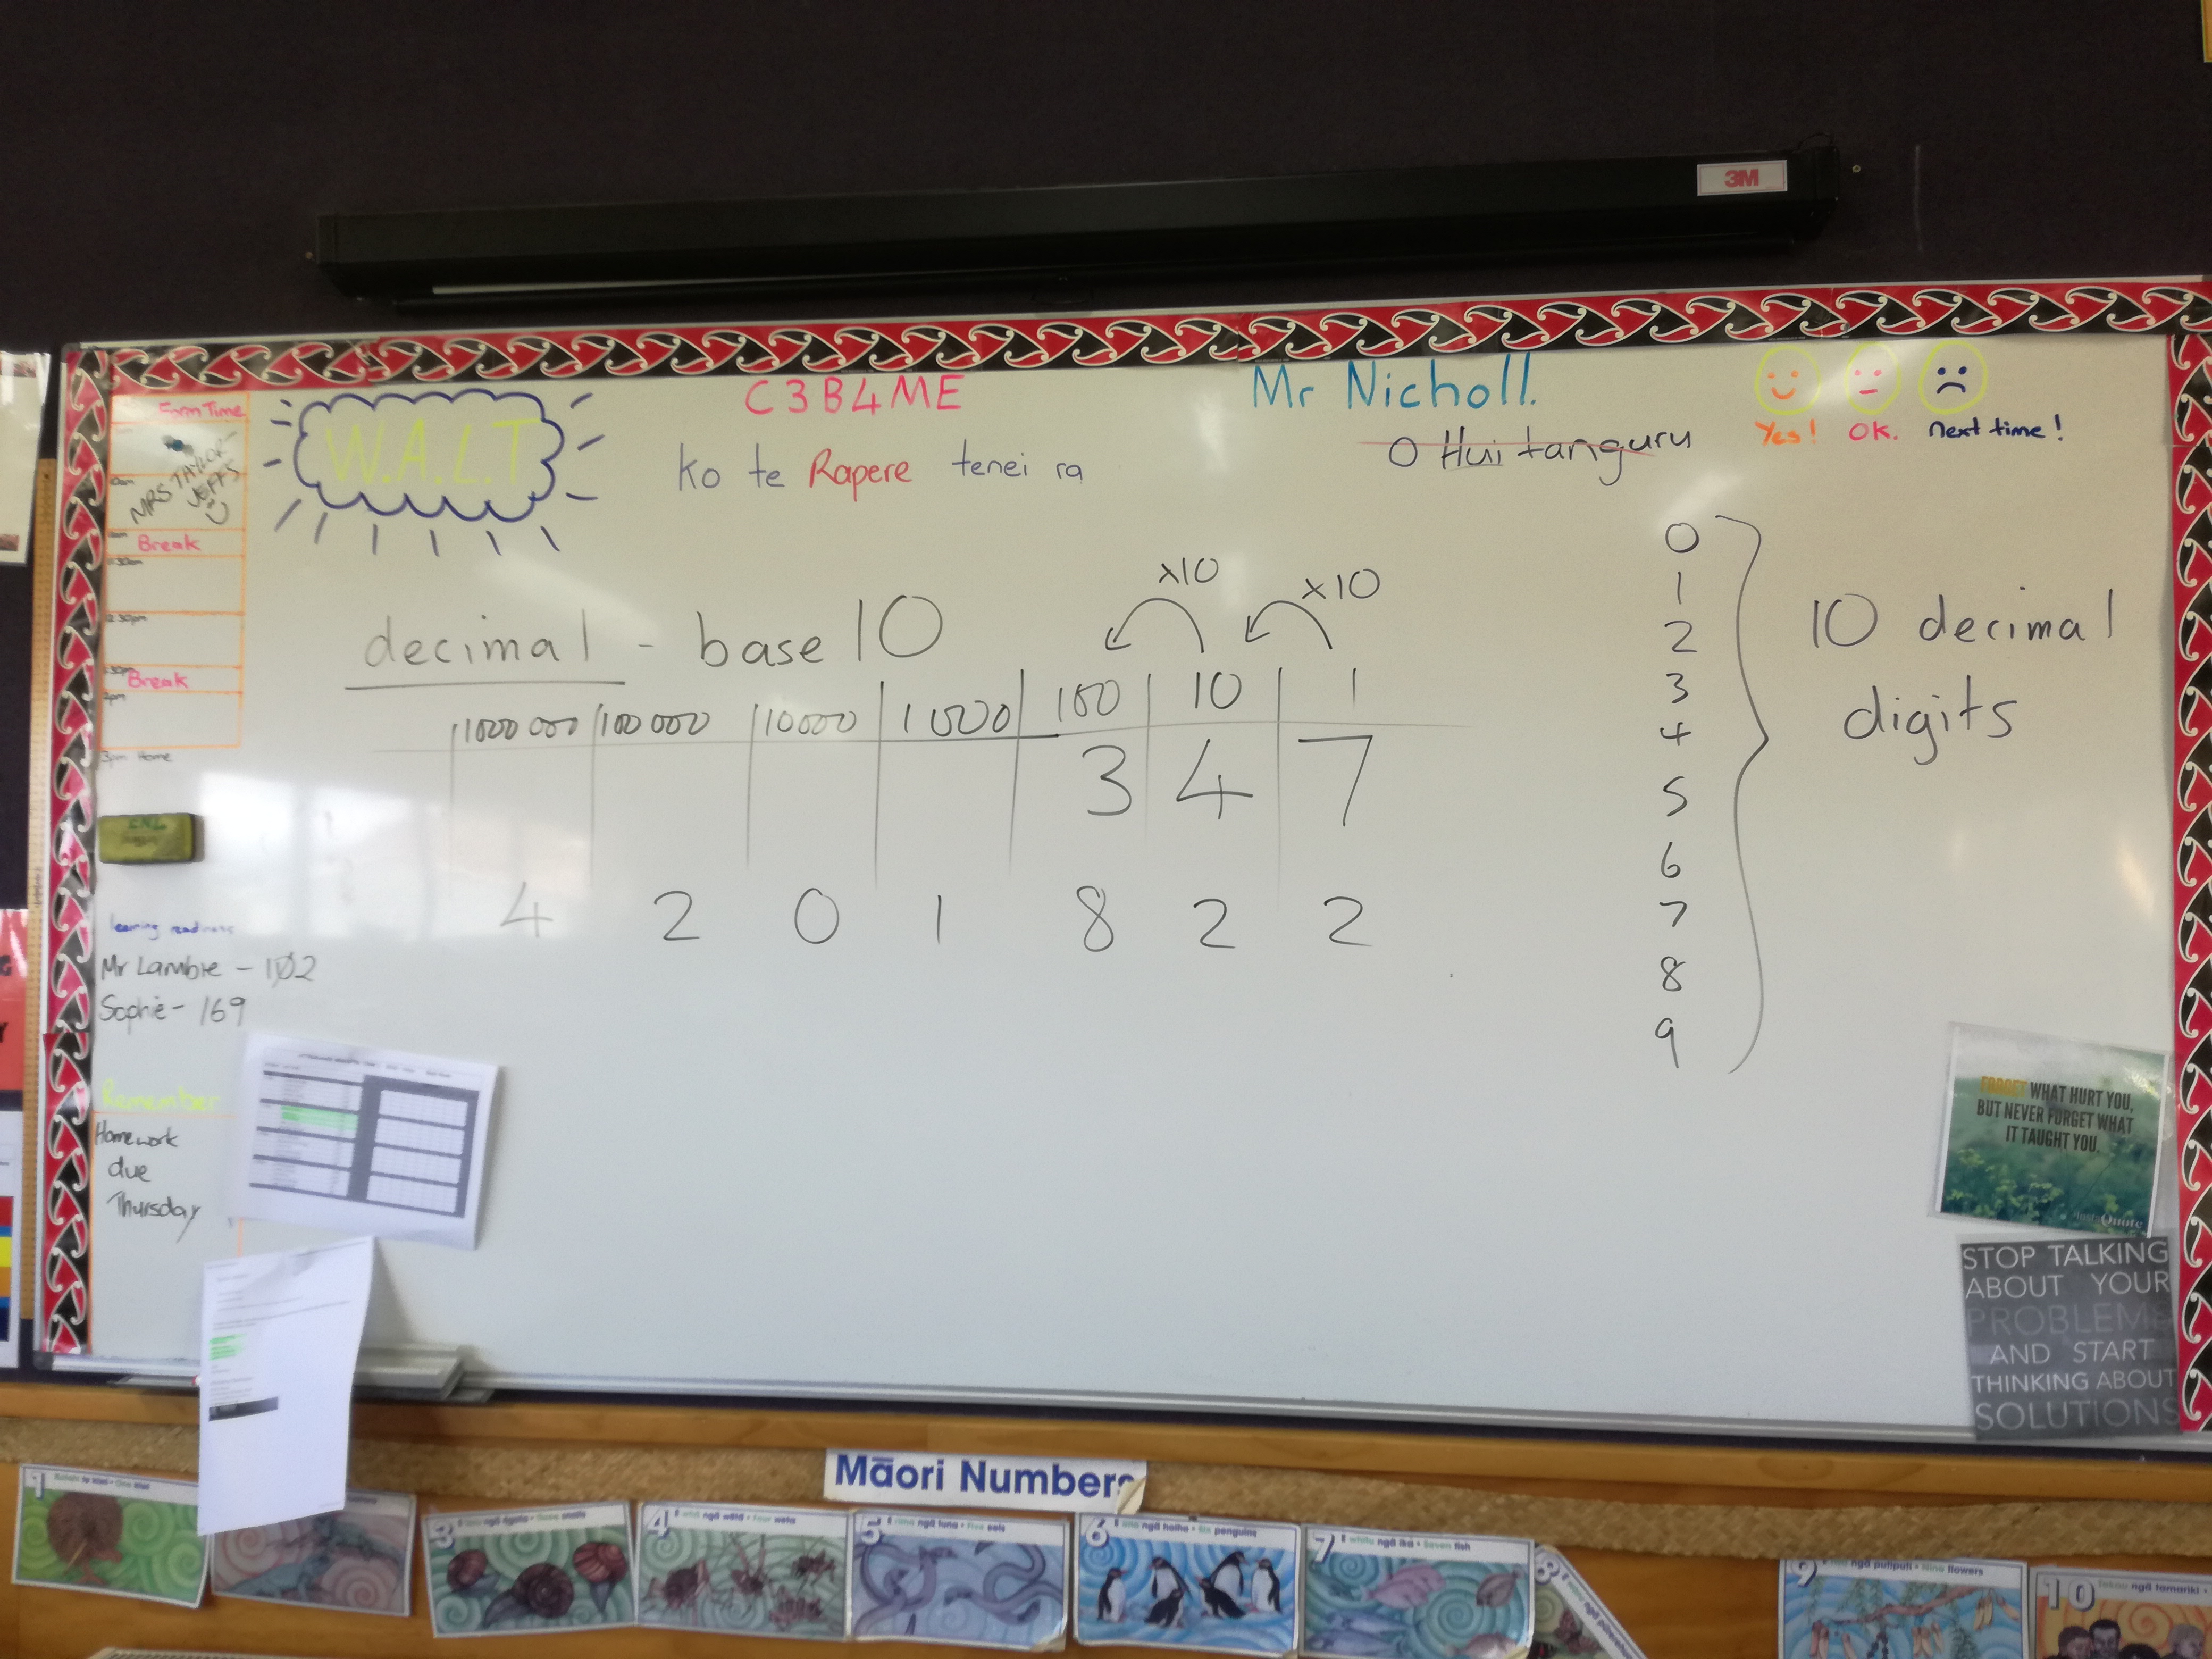 3M
Form Time
MRS TAYLOR-
JEFFS
Break
Break
3pm Home
W.A.L.T
C3B4ME
Mr Nicholl.
ko te Rapere tenei ra
O Huitanguru
Yes! OK. next time!
decimal - base 10
x10 x10
1000 000 100 000 10000 1000 100 10 1
3 4 7
4 2 0 1 8 2 2
0
1
2
3
4
5
6
7
8
9
10 decimal
digits
learning readiness
Mr Lambie - 102
Sophie - 169
Remember
Homework
due
Thursday
FORGET WHAT HURT YOU,
BUT NEVER FORGET WHAT
IT TAUGHT YOU.
Quote
STOP TALKING
ABOUT YOUR
PROBLEMS
AND START
THINKING ABOUT
SOLUTIONS
Māori Numbers
1
3
4 ngā wētā • Four weta
5 E rima ngā tuna • Five eels
6 E ono ngā hoiho • Six penguins
7 E whitu ngā ika • Seven fish
8
9 ngā putiputi • Nine flowers
10 ngā tamariki